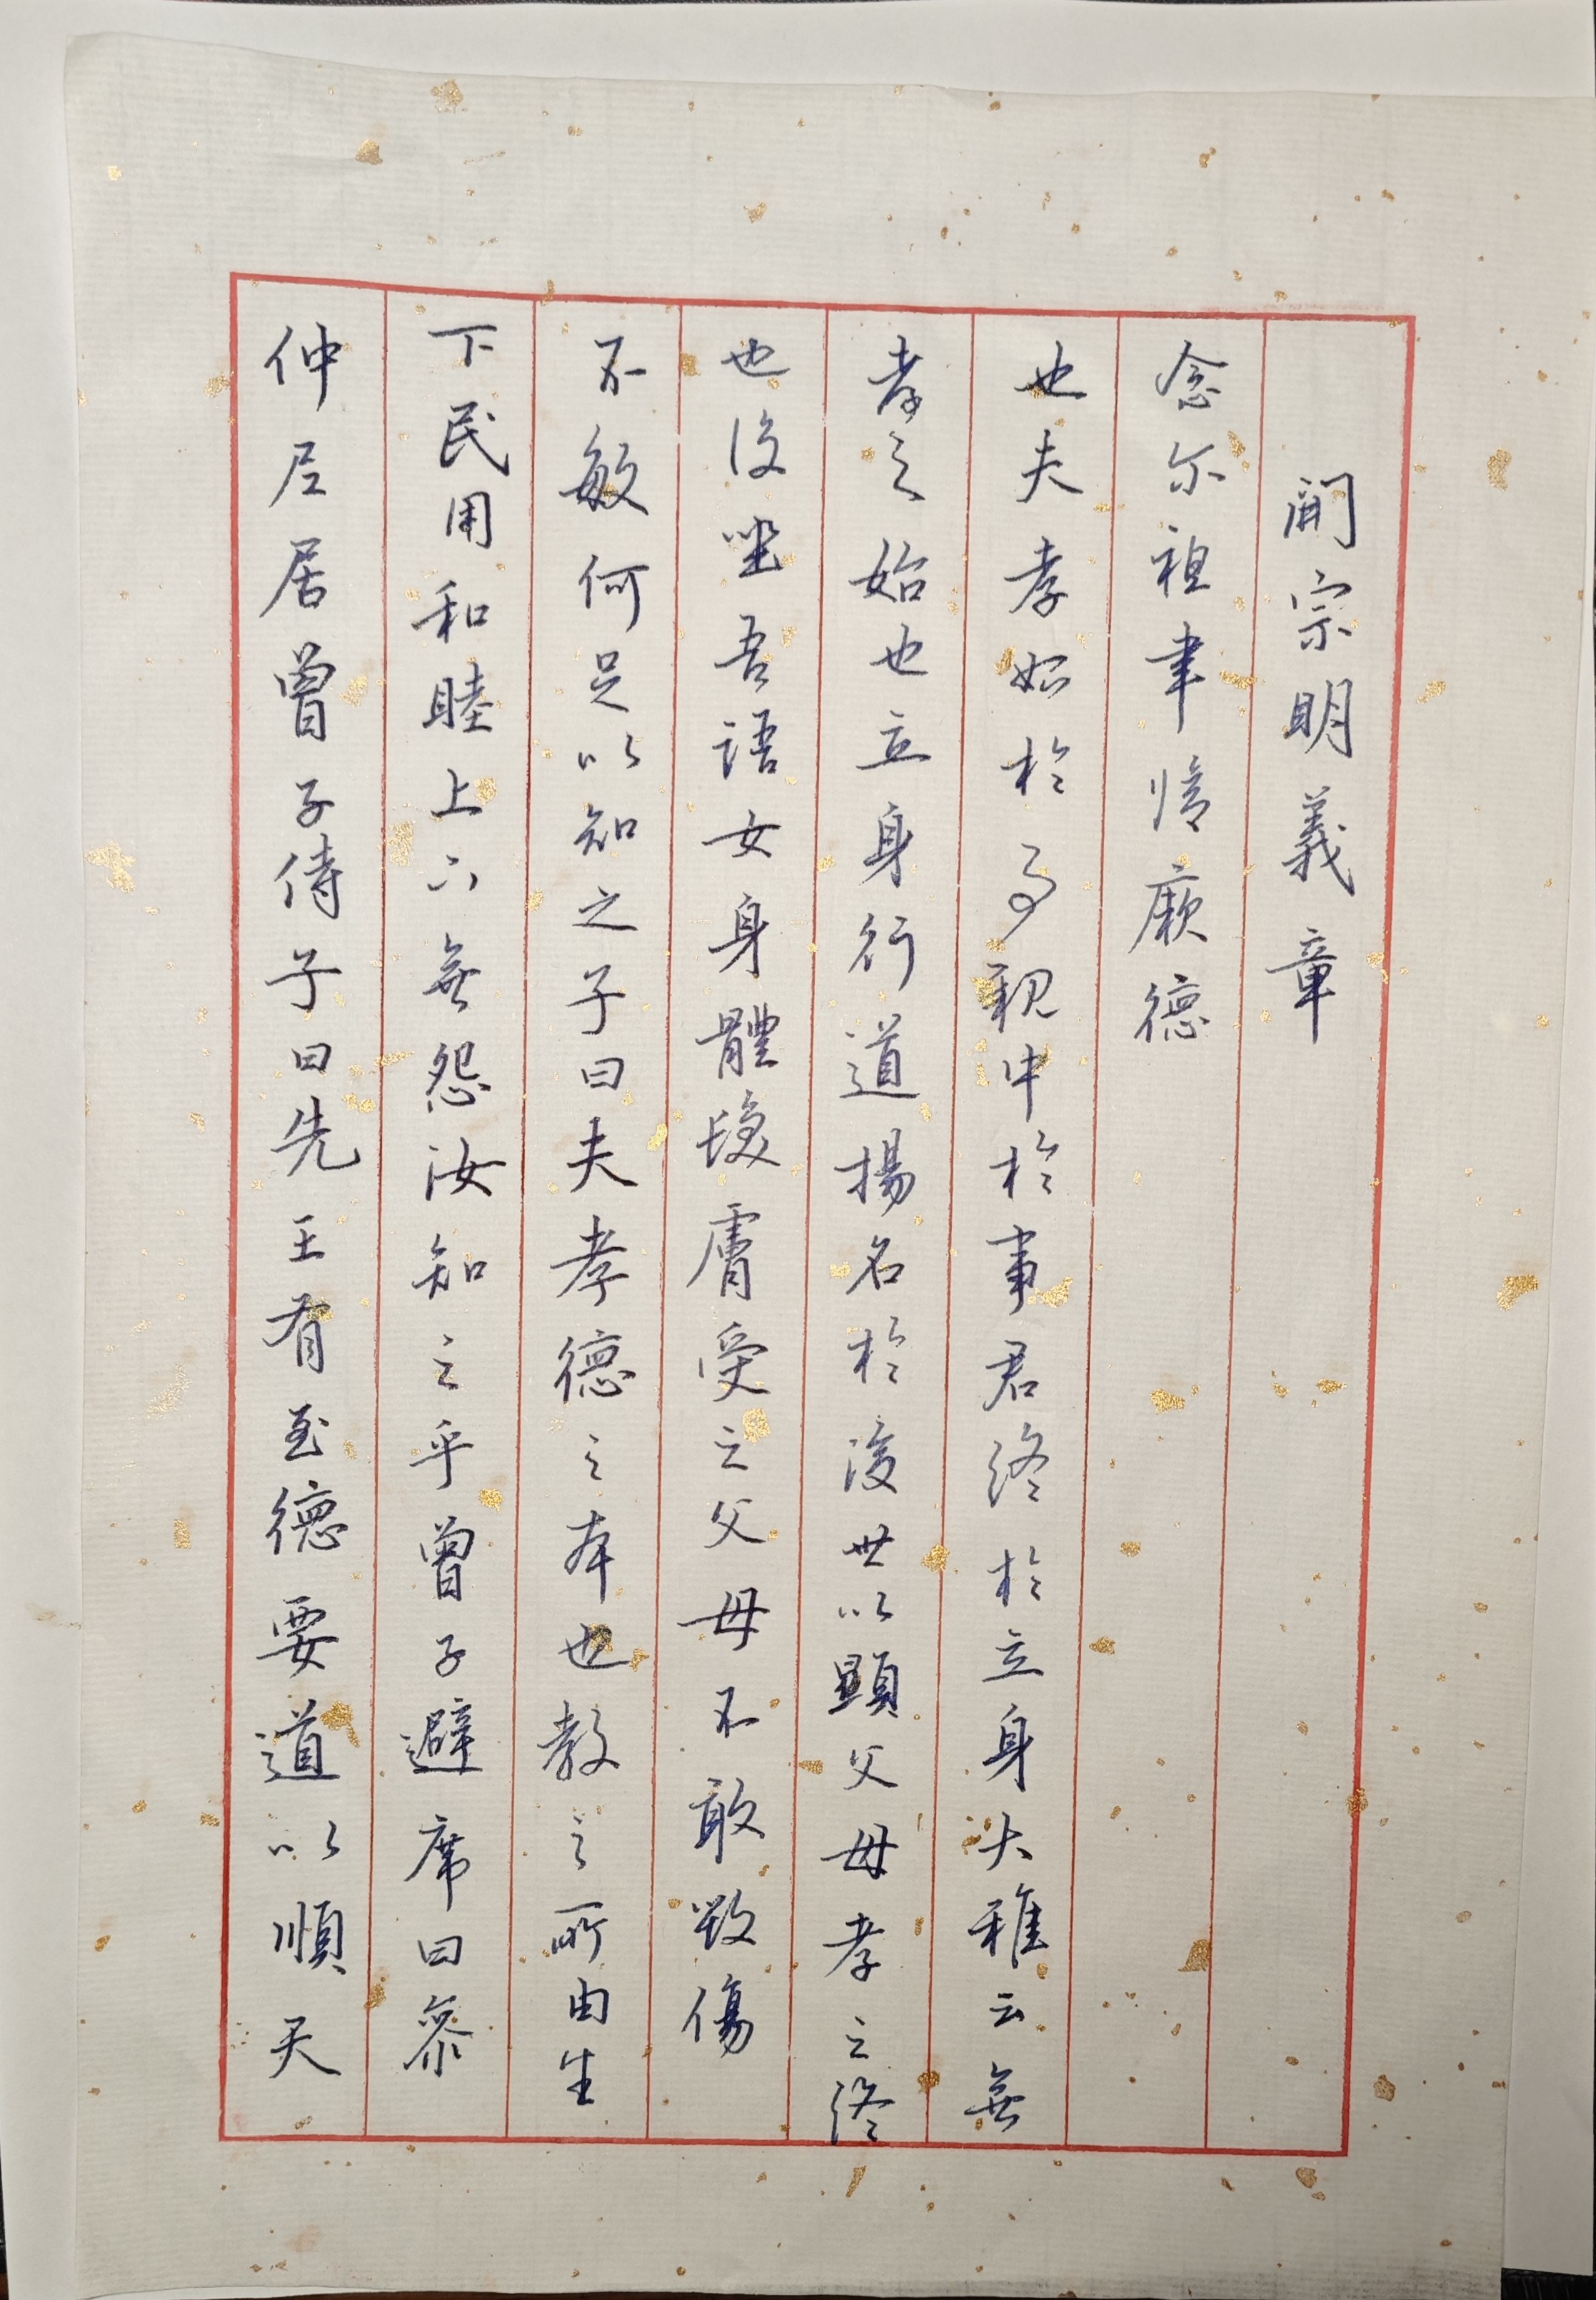 仲尼居曾子侍子曰先王有至德要道以順天
下民用和睦上下無怨汝知之乎曾子避席曰參
不敏何足以知之子曰夫孝德之本也教之所由生
也復坐吾語女身體髮膚受之父母不敢毀傷
孝之始也立身行道揚名於後世以顯父母孝之終
也夫孝始於事親中於事君終於立身大雅云無
念尔祖聿脩厥德
開宗明義章